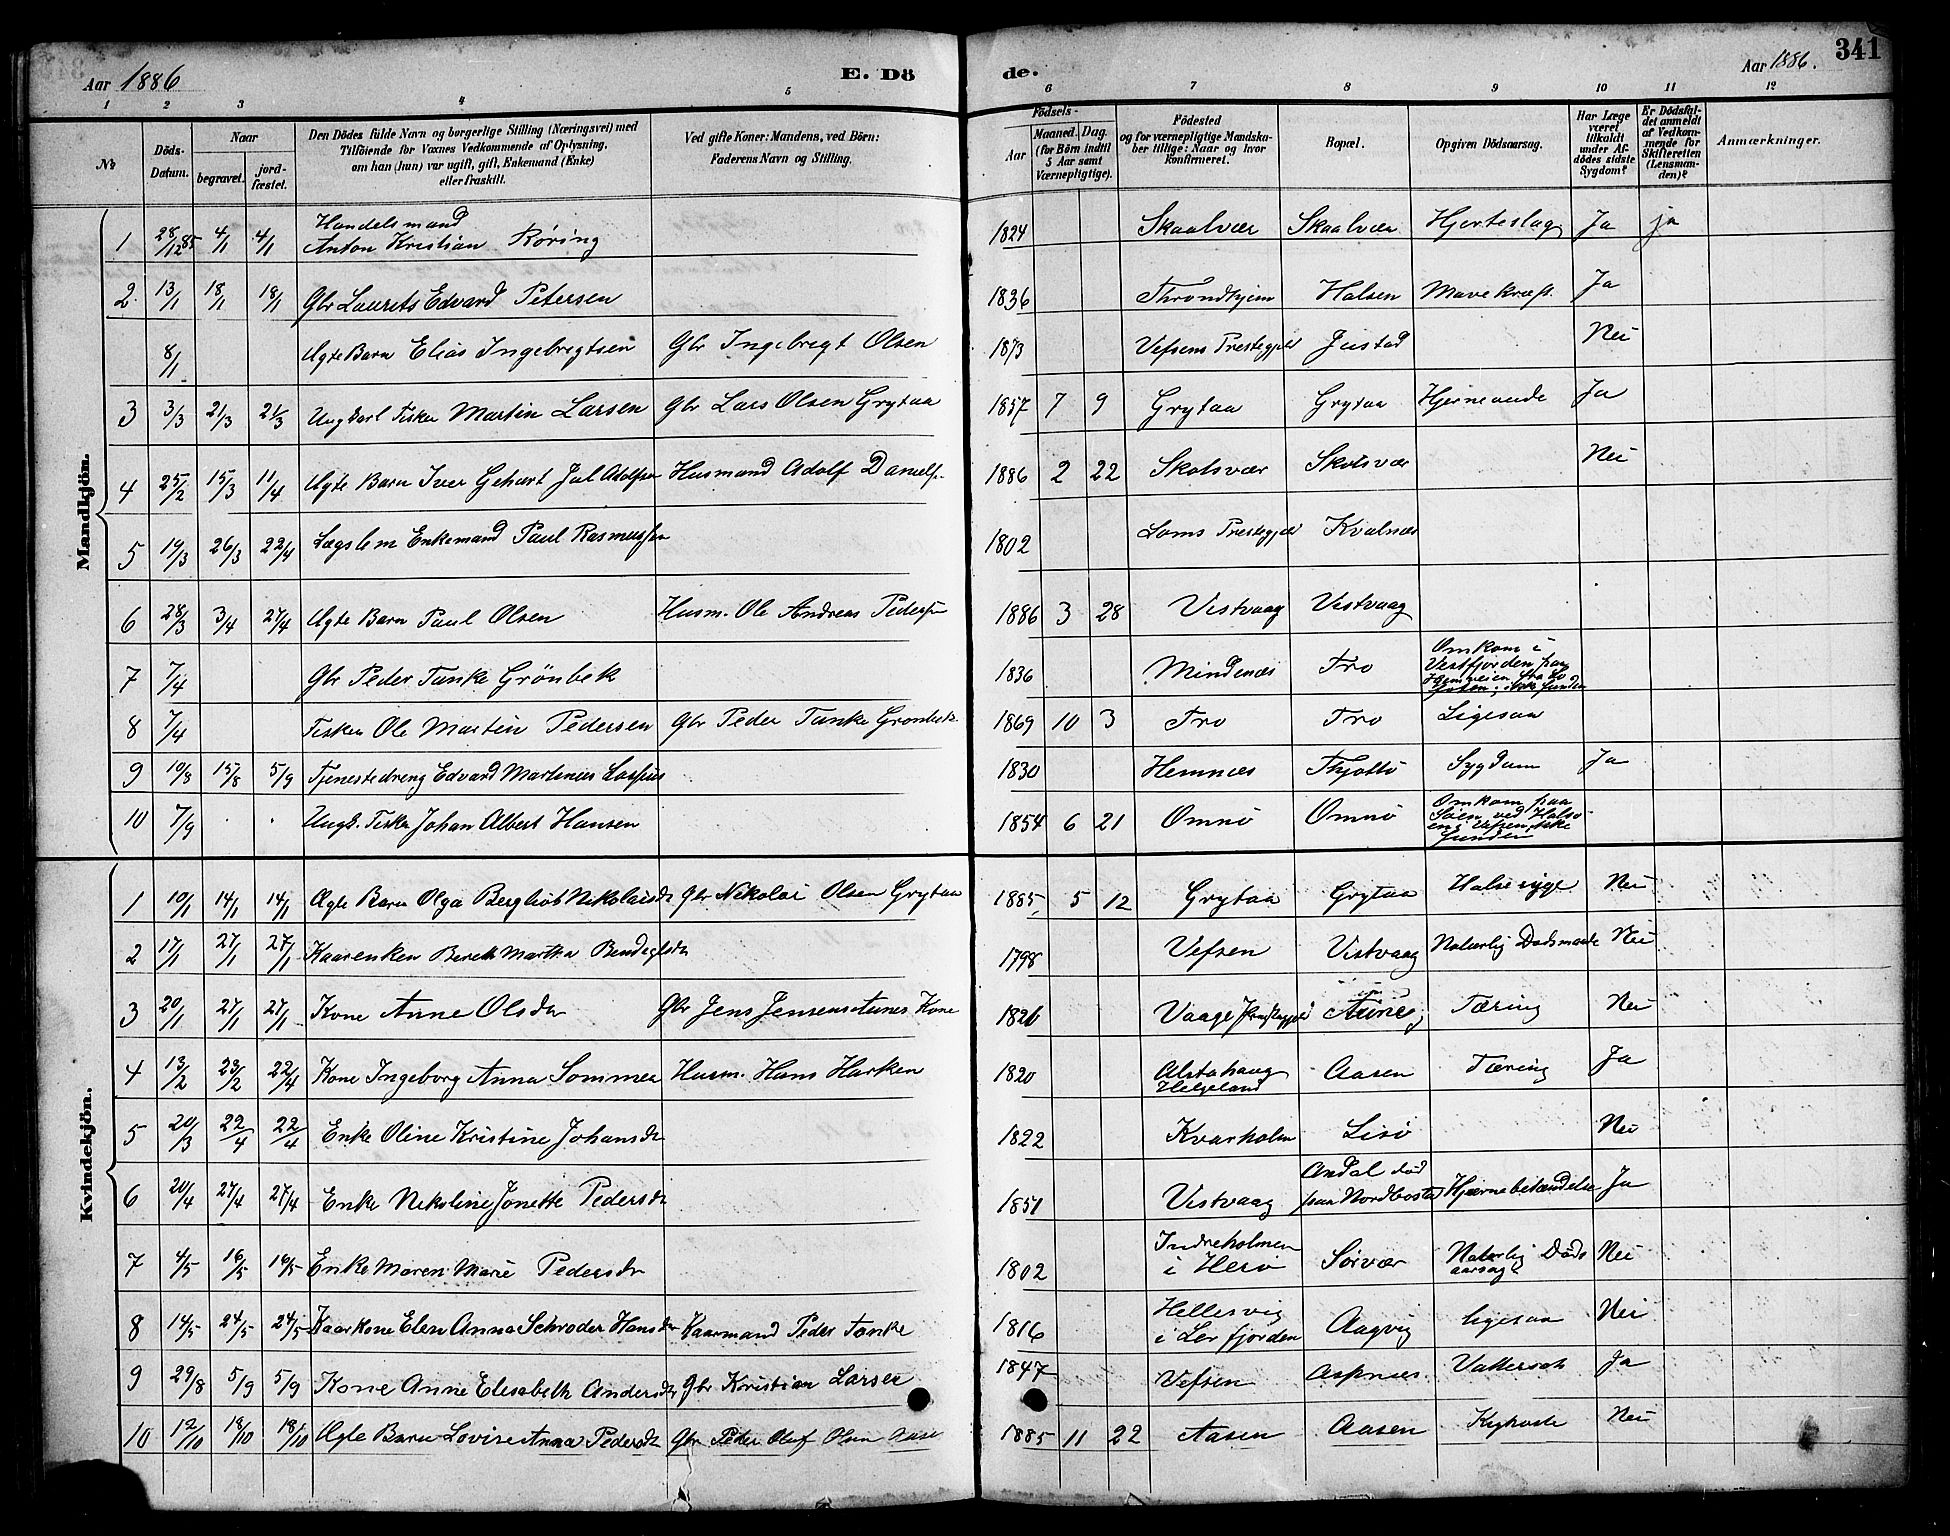 Aar 1886 E. Dö de. Aar 1886. 341
1 2 3 4 5 6 7 8 9 10 11 12
No
Döds-Datum.
Naar
begravet.
jordfæstet.
Den Dödes fulde Navn og borgerlige Stilling (Næringsvei) med
Tilföiende for Voxnes Vedkommende af Oplysning,
om han (hun) var ugift, gift, Enkemand (Enke)
eller fraskilt.
Ved gifte Koner: Mandens, ved Börn:
Faderens Navn og Stilling.
Födsels-
Aar
Maaned. Dag.
(for Börn indtil
5 Aar samt
Værnepligtige).
Födested
og for værnepligtige Mandskaber
tillige: Naar og hvor
Konfirmeret.
Bopæl.
Opgiven Dödsaarsag.
Har Læge
været
tilkaldt
under Afdödes
sidste
Sygdom?
Er Dödsfaldet
anmeldt
af Vedkommende
for
Skifteretten
(Lensmanden)?
Anmærkninger.
Mandkjön.
1 28/12 85 4/1 4/1 Handelsmand Anton Kristian Röring 1824 Skaalvær Skaalvær Hjerteslag Ja ja
2 13/1 18/1 18/1 Gbr Laurits Edvard Petersen 1836 Throndhjem Halsen Mavekræft Ja
8/1 Ægte Barn Elias Ingebregtsen Gbr Ingebregt Olsen 1873 Vefsens Prestegjeld Justad Nei
3 3/3 21/3 21/3 Ungkarl Fisker Martin Larsen Gbr Lars Olsen Grytaa 1857 7 9 Grytaa Grytaa Hjerneonde Ja
4 25/2 15/3 11/4 Ægte Barn Iver Gehart Jul Adolfsen Husmand Adolf Danielsn 1886 2 22 Skotsvær Skotsvær Nei
5 19/3 26/3 22/4 Lægslem Enkemand Paul Rasmussen 1802 Loms Prestegjeld Kvalnæs
6 28/3 3/4 27/4 Ægte Barn Paul Olsen Husm. Ole Andreas Pedersen 1886 3 28 Vistvaag Vistvaag
7 7/4 Gbr Peder Tanke Grönbek 1836 Mindenæs Tro Omkom i Vestfjorden paa Hjemveien fra Lofoten, ikke funden
8 7/4 Fisker Ole Martin Pedersen Gbr Peder Tanke Grönbek 1869 10 3 Tro Tro Ligesaa
9 10/8 15/8 5/9 Tjenestedreng Edvard Martinus 1830 Hemnæs Thjøttö Sygdom Ja
10 7/9 Ungk. Fisker Johan Albert Hansen 1854 6 21 Omnö Omnö Omkom paa Söen ved Halsöen i Vefsen, ikke funden
Kvindekjön.
1 10/1 14/1 14/1 Ægte Barn Olga Bergliot Nikolaisdr Gbr Nikolai Olsen Grytaa 1885 5 12 Grytaa Grytaa Halssyge Nei
2 17/1 27/1 27/1 Kaarenken Martha 1798 Vefsen Vistvaag Naturlig Dødsmaade Nei
3 20/1 27/1 27/1 Kone Anne Olsdr Gbr Jens Jensens Aunes Kone 1826 Vaage Prestegjeld Aunes Tæring Nei
4 13/2 23/2 22/4 Kone Ingeborg Anna Sommer Husm. Hans Harken 1820 Alstahaug Helgeland Aasen Tæring Ja
5 20/3 22/4 22/4 Enke Oline Kristine Johansdr 1822 Kvarholm Lisö Nei
6 20/4 27/4 27/4 Enke Nikoline Jonette Pedersdr 1851 Vistvaag Andal död paa Nordbostad Hjernebetændelse Ja
7 4/5 16/5 16/5 Enke Maren Marie Pedersdr 1802 Indreholmen i Herö Sörvær Naturlig Döds aarsag Nei
8 14/5 24/5 24/5 Kaarkone Elen Anna Schroder Hansdr Kaarmand Peder Tanke 1816 Hellesvig i Lerfjorden Aagvig ligesaa Nei
9 29/8 5/9 5/9 Kone Anne Elisabeth Andersdr Gbr Kristian Larsen 1847 Vefsen Aspnæs. Vattersot Ja
10 12/10 18/10 18/10 Ægte Barn Lovise Anna Pedersdr Gbr Peder Oluf Olsen Aase 1885 11 22 Aasen Aasen Kighoste Nei